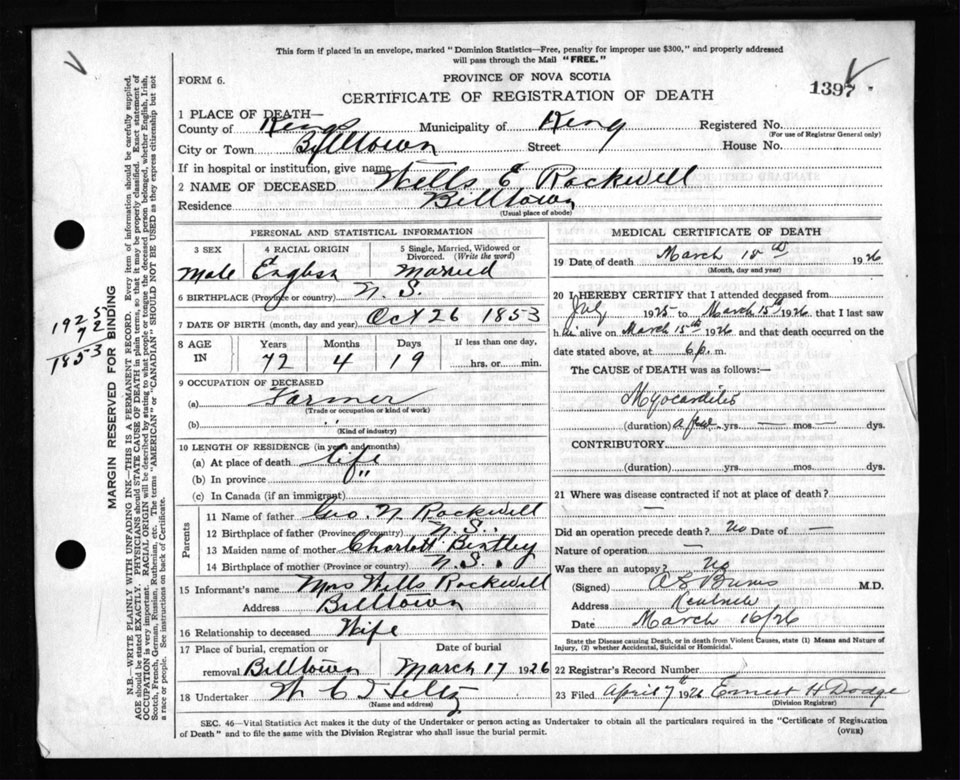 This form if placed in an envelope, marked "Dominion Statistics—Free, penalty for improper use $300," and properly addressed
will pass through the Mail "FREE."
FORM 6.
PROVINCE OF NOVA SCOTIA
CERTIFICATE OF REGISTRATION OF DEATH
1397
1 PLACE OF DEATH—
County of Kings Municipality of King Registered No.
(For use of Registrar General only)
City or Town Billtown Street House No.
If in hospital or institution, give name
2 NAME OF DECEASED Wells E Rockwell
Residence Billtown
(Usual place of abode)
PERSONAL AND STATISTICAL INFORMATION
3 SEX 4 RACIAL ORIGIN 5 Single, Married, Widowed or Divorced. (Write the word)
Male English Married
6 BIRTHPLACE (Province or country) N.S.
7 DATE OF BIRTH (month, day and year) Oct 26 1853
8 AGE IN Years Months Days If less than one day,
72 4 19 hrs. or min.
9 OCCUPATION OF DECEASED
(a) Farmer
(Trade or occupation or kind of work)
(b) "
(Kind of industry)
10 LENGTH OF RESIDENCE (in years and months)
(a) At place of death life
(b) In province "
(c) In Canada (if an immigrant)
Parents
11 Name of father Geo. N Rockwell
12 Birthplace of father (Province or country) N.S.
13 Maiden name of mother Charlott Bentley
14 Birthplace of mother (Province or country) N.S.
15 Informant's name Mrs Wells Rockwell
Address Billtown
16 Relationship to deceased Wife
17 Place of burial, cremation or Date of burial
removal Billtown March 17 1926
18 Undertaker
(Name and address)
MEDICAL CERTIFICATE OF DEATH
19 Date of death March 1926
(Month, day and year)
20 I HEREBY CERTIFY that I attended deceased from
July 1925 to March 15th 1926, that I last saw
him alive on March 15th 1926 and that death occurred on the
date stated above, at 6 p. m.
The CAUSE of DEATH was as follows:—
Myocarditis
(duration) a few yrs. — mos. — dys.
CONTRIBUTORY
(duration) yrs. mos. dys.
21 Where was disease contracted if not at place of death?
—
Did an operation precede death? No Date of —
Nature of operation —
Was there an autopsy? No
(Signed) M.D.
Address
Date March 16/26
State the Disease causing Death, or in death from Violent Causes, state (1) Means and Nature of
Injury, (2) whether Accidental, Suicidal or Homicidal.
22 Registrar's Record Number
23 Filed April 7th 1926 Ernest H Dodge
(Division Registrar)
SEC. 46—Vital Statistics Act makes it the duty of the Undertaker or person acting as Undertaker to obtain all the particulars required in the "Certificate of Registration
of Death" and to file the same with the Division Registrar who shall issue the burial permit.
(OVER)
1925
72
1853
MARGIN RESERVED FOR BINDING
N.B.—WRITE PLAINLY WITH UNFADING INK—THIS IS A PERMANENT RECORD. Every item of information should be carefully supplied.
AGE should be stated EXACTLY. PHYSICIANS should STATE CAUSE OF DEATH in plain terms, so that it may be properly classified. Exact statement of
OCCUPATION is very important. RACIAL ORIGIN will be described by stating to what people or tongue the deceased person belonged, whether English, Irish,
Scotch, French, German, Russian, Ruthenian, etc. The terms "AMERICAN" or "CANADIAN" SHOULD NOT BE USED as they express citizenship but not
a race or people. See instructions on back of Certificate.